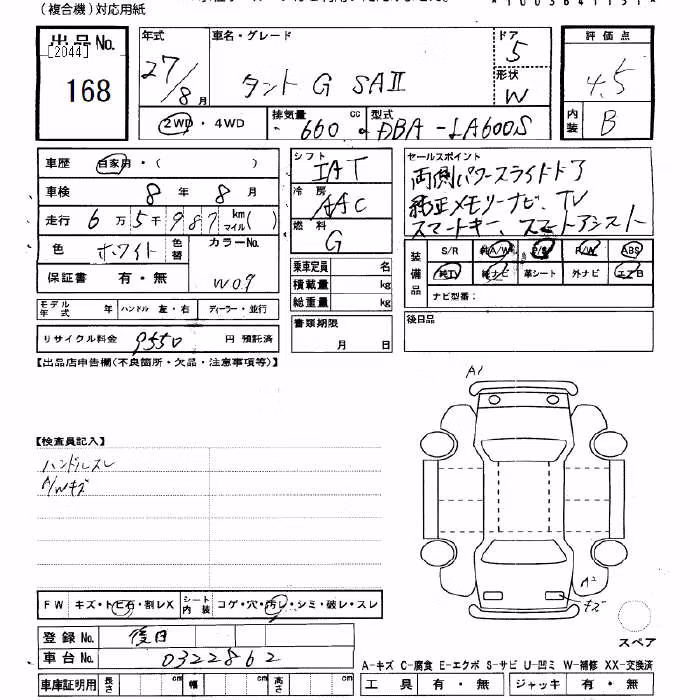 (複合機)対応用紙
出品No.
[2044]
168
年式
27/8月
車名・グレード
タント G SAⅡ
ドア
5
形状
W
評価点
4.5
内装
B
2WD・4WD
排気量
660 cc
型式
DBA-LA600S
車歴 自家用・( )
車検 8年 8月
走行 6万5千987 km マイル( )
色 ホワイト 色替 カラーNo.
W09
保証書 有・無
モデル年式 年 ハンドル 左・右 ディーラー・並行
リサイクル料金 9550 円 預託済
シフト
IAT
冷房
AAC
燃料
G
乗車定員 名
積載量 kg
総重量 kg
書類期限
月 日
セールスポイント
両側パワースライドドア
純正メモリーナビ、TV
スマートキー、スマートアシスト
装備品
S/R 純A/W P/S P/W ABS
純TV 純ナビ 革シート 外ナビ エアB
ナビ型番:
後日品
【出品店申告欄(不良箇所・欠品・注意事項等)】
A1
【検査員記入】
ハンドルスレ
A/Wキズ
A2
キズ
FW キズ・トビ石・割レX シート内装 コゲ・穴・汚レ・シミ・破レ・スレ
登録No. 後日
車台No. 0322862
スペア
A-キズ C-腐食 E-エクボ S-サビ U-凹ミ W-補修 XX-交換済
車庫証明用 長さ cm 幅 cm 高さ cm
工具 有・無 ジャッキ 有・無